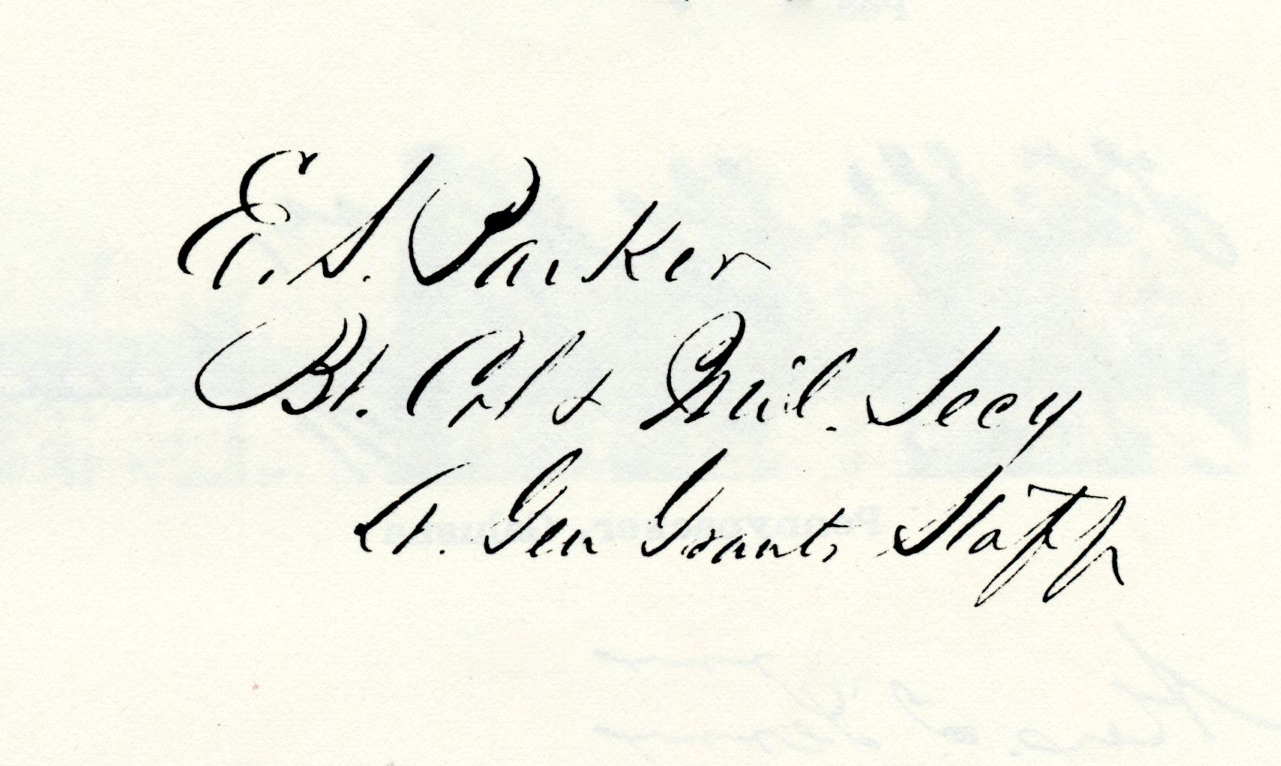 E. S. Parker
Bt. Col & Mil. Secy
Lt. Gen Grants Staff